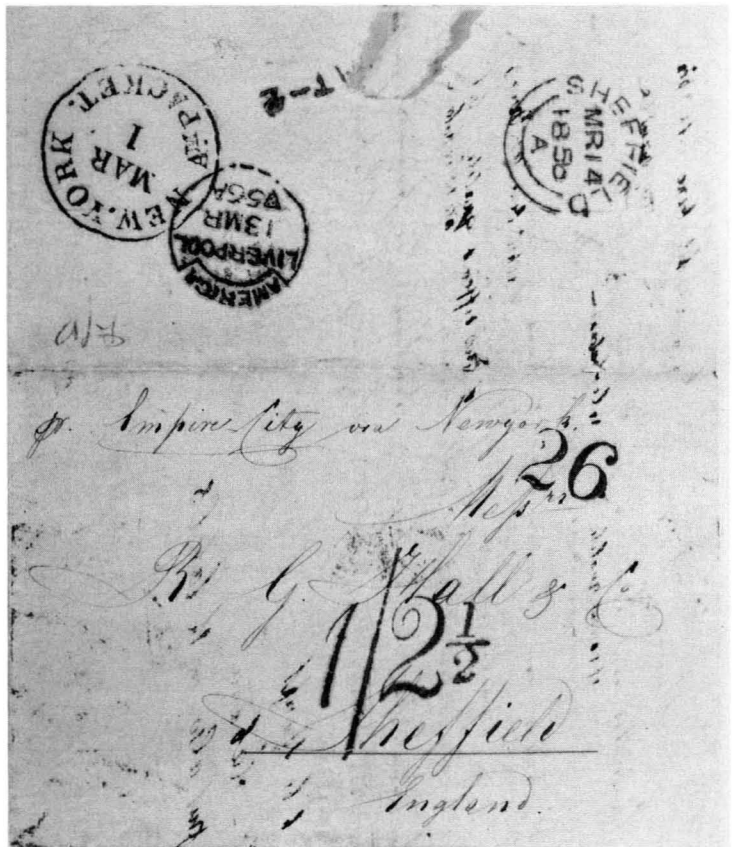 NEW.YORK AM. PACKET.
MAR
1
AMERICA
LIVERPOOL
13MR
56A
SHEFFIELD
MR14
1856
A
pr. Empire City via Newyork.
26
Messrs
R G Hall & Co
1/2½
Sheffield
England.